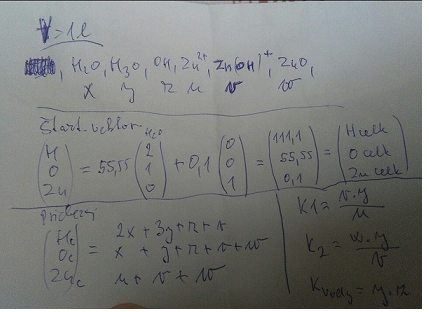 V = 1 l
, H₂O, H₃O, OH, Zn²⁺, Zn(OH)⁺, ZnO,
x y z u v w
Start vektor
(H O Zn) = 55,55 H₂O (2 1 0) + 0,1 (0 0 1) = (111,1 55,55 0,1) = (H celk O celk Zn celk)
(Hc Oc Znc) = 2x + 3y + z + v
x + y + z + v + w
u + v + w
K1 = v.y / u
K₂ = w.y / v
Kvody = y.z